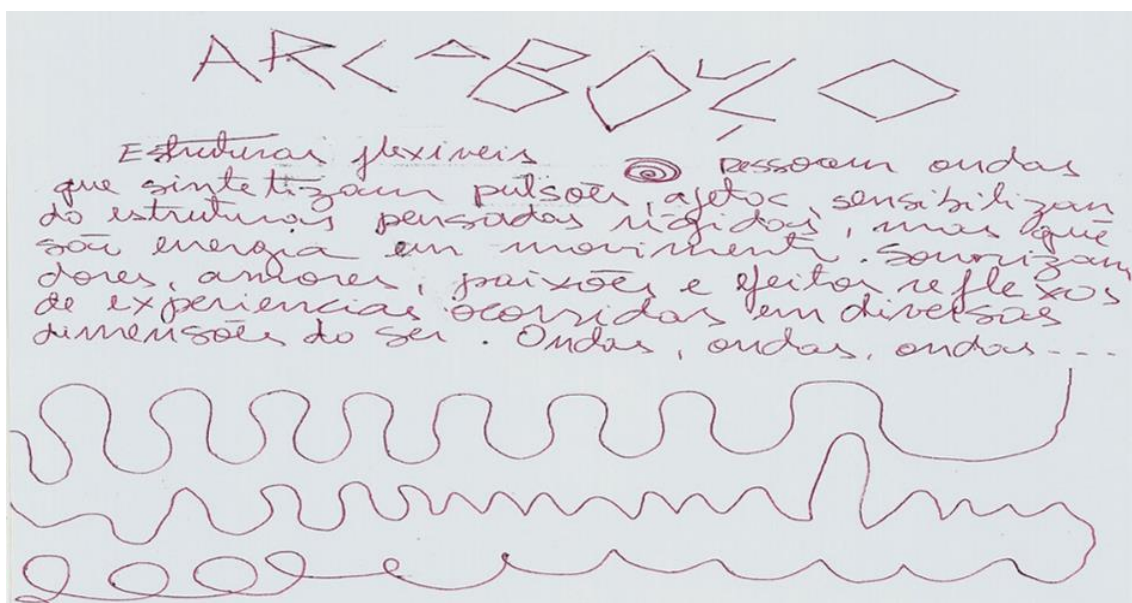 ARCABOÇO
Estruturas flexíveis ressoam ondas
que sintetizam pulsões, afetos, sensibilizan
do estruturas pensadas rígidas, mas que
são energia em movimento. Sonorizam
dores, amores, paixões e efeitos reflexos
de experiencias ocorridas em diversas
dimensões do ser. Ondas, ondas, ondas....